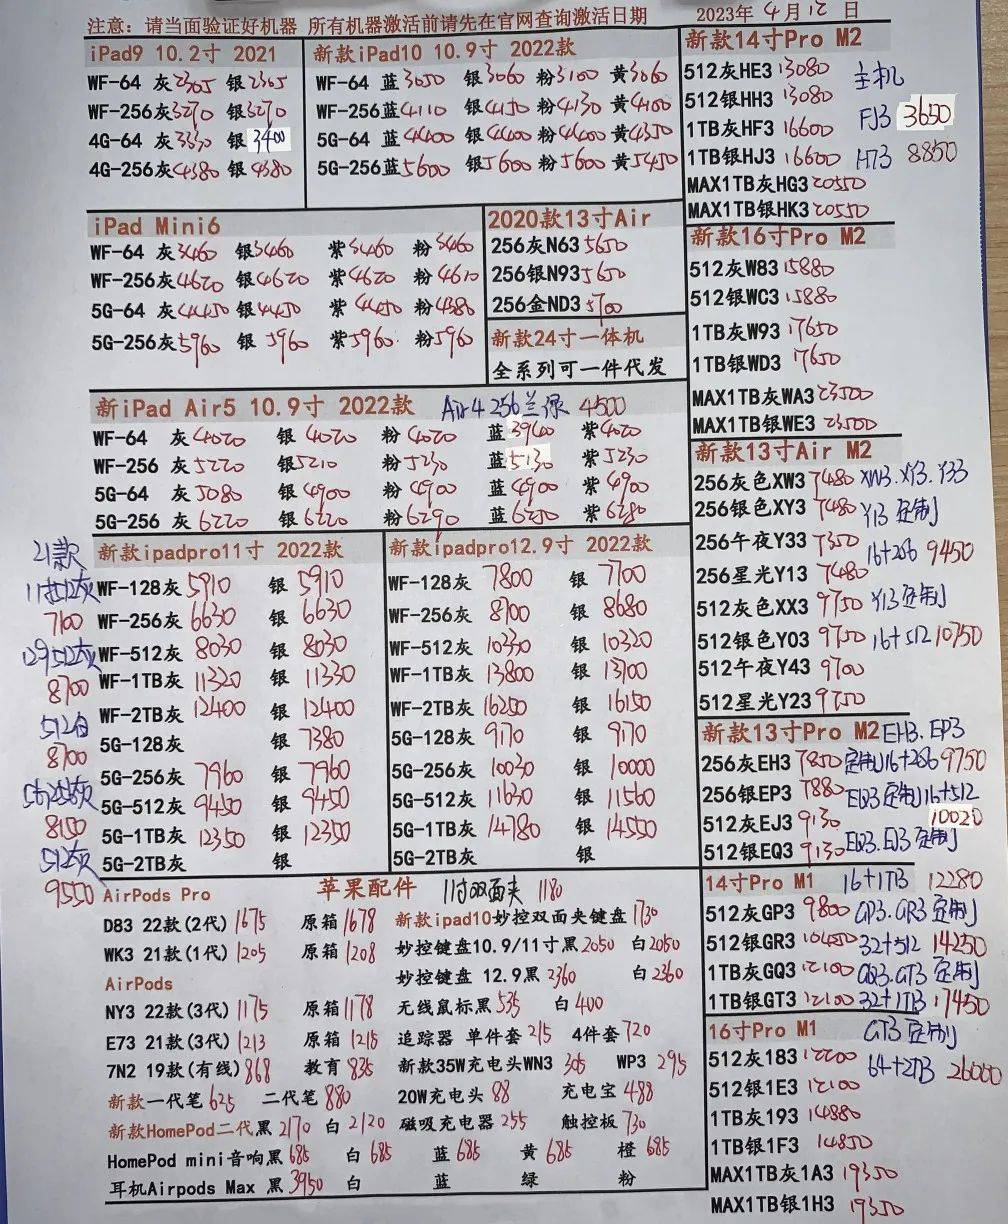 注意：请当面验证好机器 所有机器激活前请先在官网查询激活日期
2023年 4月12日
iPad9 10.2寸 2021
WF-64 灰2305 银2305
WF-256灰3270 银3270
4G-64 灰3330 银3400
4G-256灰4380 银4380
新款iPad10 10.9寸 2022款
WF-64 蓝3050 银3060 粉3100 黄3060
WF-256蓝4110 银4150 粉4130 黄4100
5G-64 蓝4400 银4400 粉4400 黄4350
5G-256蓝5600 银5600 粉5600 黄5450
iPad Mini6
WF-64 灰3460 银3460 紫3460 粉3460
WF-256灰4620 银4620 紫4620 粉4610
5G-64 灰4450 银4450 紫4450 粉4380
5G-256灰5960 银5960 紫5960 粉5960
2020款13寸Air
256灰N63 5650
256银N93 5650
256金ND3 5700
新款24寸一体机
全系列可一件代发
新iPad Air5 10.9寸 2022款 Air4 256兰绿 4500
WF-64 灰4020 银4020 粉4020 蓝3940 紫4020
WF-256 灰5220 银5210 粉5230 蓝5130 紫5230
5G-64 灰5080 银4900 粉4900 蓝4900 紫4900
5G-256 灰6220 银6220 粉6290 蓝6250 紫6280
21款
11寸512灰
7100
129512灰
8700
512白
8700
5G256灰
8150
512灰
9550
新款ipadpro11寸 2022款
WF-128灰 5910 银 5910
WF-256灰 6630 银 6630
WF-512灰 8030 银 8030
WF-1TB灰 11320 银 11330
WF-2TB灰 12400 银 12400
5G-128灰 银 7380
5G-256灰 7960 银 7960
5G-512灰 9450 银 9450
5G-1TB灰 12350 银 12350
5G-2TB灰 银
新款ipadpro12.9寸 2022款
WF-128灰 7800 银 7700
WF-256灰 8700 银 8680
WF-512灰 10330 银 10320
WF-1TB灰 13800 银 13700
WF-2TB灰 16250 银 16150
5G-128灰 9170 银 9170
5G-256灰 10030 银 10000
5G-512灰 11630 银 11560
5G-1TB灰 14780 银 14550
5G-2TB灰 银
AirPods Pro 苹果配件 11寸双面夹 1180
D83 22款(2代) 1675 原箱 1678 新款ipad10妙控双面夹键盘 1730
WK3 21款(1代) 1205 原箱 1208 妙控键盘10.9/11寸黑2050 白2050
AirPods 妙控键盘 12.9黑2360 白2360
NY3 22款(3代) 1175 原箱1178 无线鼠标黑535 白400
E73 21款(3代) 1213 原箱 1218 追踪器 单件套215 4件套720
7N2 19款(有线) 868 教育835 新款35W充电头WN3 305 WP3 295
新款一代笔625 二代笔880 20W充电头88 充电宝488
新款HomePod二代黑2170 白2120 磁吸充电器255 触控板730
HomePod mini音响黑685 白685 蓝685 黄685 橙685
耳机Airpods Max 黑3950 白 蓝 绿 粉
新款14寸Pro M2
512灰HE3 13080 主机
512银HH3 13080
1TB灰HF3 16600 FJ3 3650
1TB银HJ3 16600 H73 8850
MAX1TB灰HG3 20550
MAX1TB银HK3 20550
新款16寸Pro M2
512灰W83 15880
512银WC3 15880
1TB灰W93 17650
1TB银WD3 17650
MAX1TB灰WA3 23500
MAX1TB银WE3 23500
新款13寸Air M2
256灰色XW3 7480 XW3.XY3.Y33
256银色XY3 7480 Y13 定制
256午夜Y33 7350 16+256 9450
256星光Y13 7480
512灰色XX3 9750 Y13定制
512银色Y03 9750 16+512 10750
512午夜Y43 9700
512星光Y23 9750
新款13寸Pro M2 EH3.EP3
256灰EH3 7850 定制16+256 9750
256银EP3 7880 EQ3定制16+512
512灰EJ3 9130 10020
512银EQ3 9130 EQ3.EJ3定制
14寸Pro M1 16+1TB 12280
512灰GP3 9800 GP3.GR3定制
512银GR3 10450 32+512 14250
1TB灰GQ3 12100 GQ3.GT3定制
1TB银GT3 12100 32+1TB 17450
16寸Pro M1 GT3定制
512灰183 12200 64+2TB 26000
512银1E3 12100
1TB灰193 14880
1TB银1F3 14850
MAX1TB灰1A3 19350
MAX1TB银1H3 19350